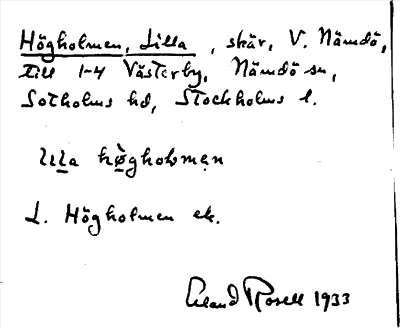 Högholmen, Lilla, skär, V. Nämdö,
till 1-4 Västerby, Nämdö sn,
Sotholms hd, Stockholms l.
lɩla hø̀ghoʟmən
L. Högholmen ek.
Erland Rosell 1933